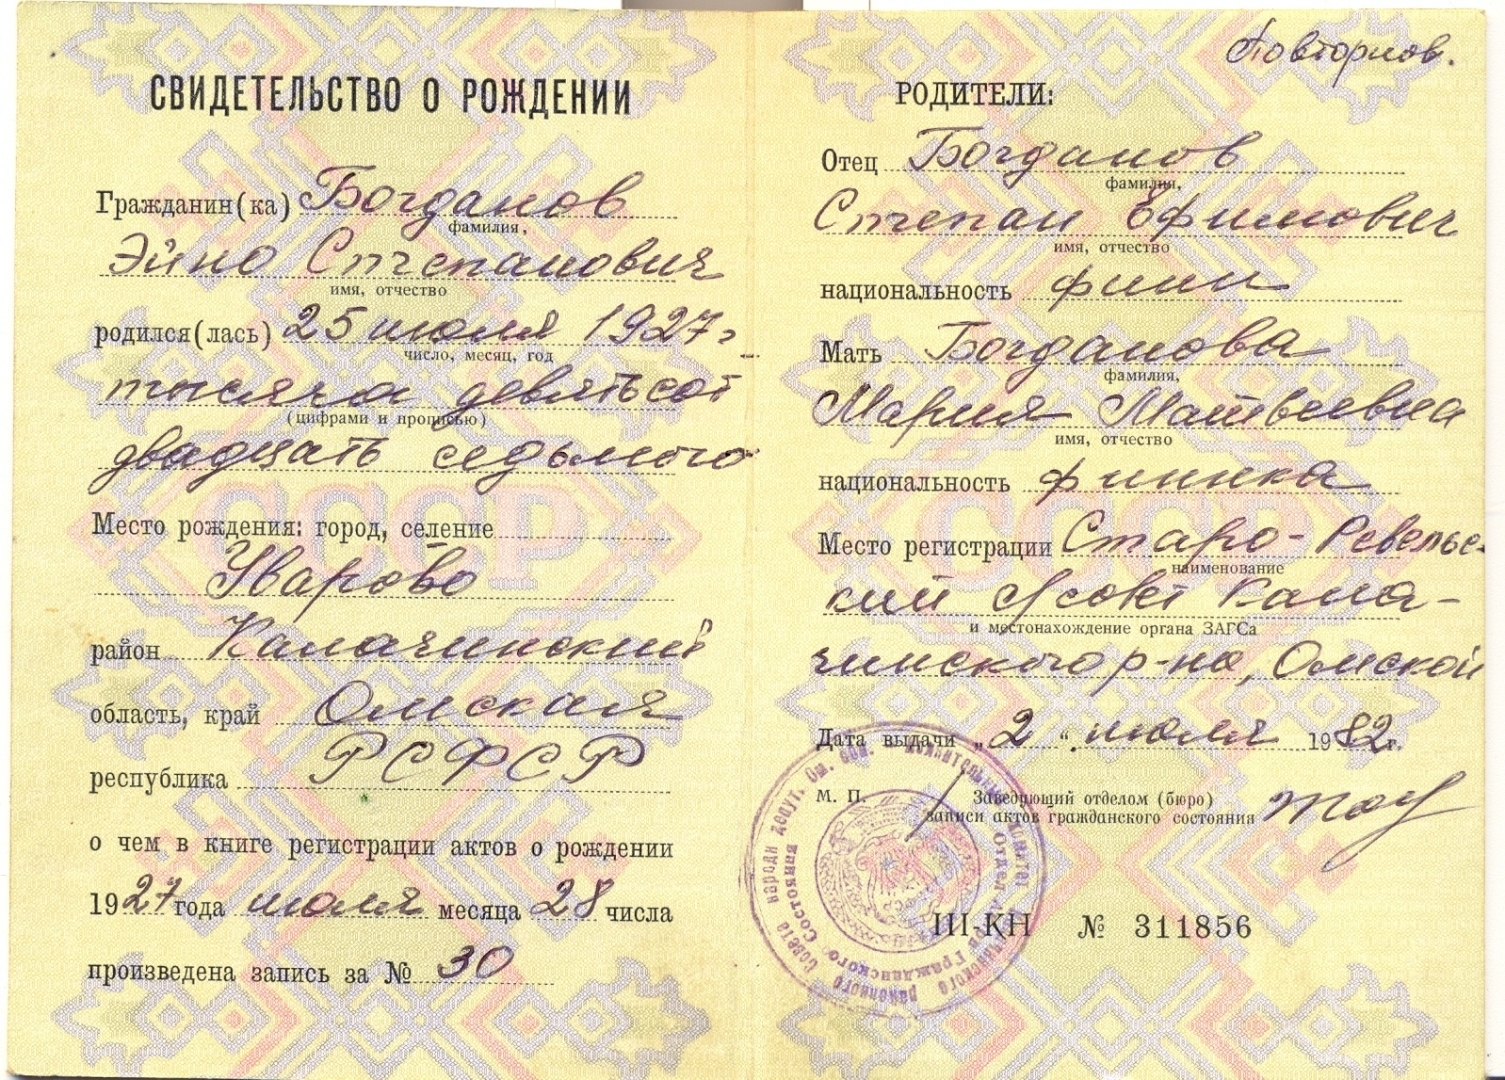 СВИДЕТЕЛЬСТВО О РОЖДЕНИИ
Гражданин(ка) Богданов
фамилия,
Эйно Степанович
имя, отчество
родился(лась) 25 июля 1927 г.
число, месяц, год
тысяча девятьсот
(цифрами и прописью)
двадцать седьмого
Место рождения: город, селение
Уварово
район Калачинский
область, край Омская
республика РСФСР
о чем в книге регистрации актов о рождении
1927 года июля месяца 28 числа
произведена запись за № 30
Повторное.
РОДИТЕЛИ:
Отец Богданов
фамилия,
Степан Ефимович
имя, отчество
национальность финн
Мать Богданова
фамилия,
Мария Матвеевна
имя, отчество
национальность финка
Место регистрации Старо-Ревельс-
наименование
кий с/совет Кала-
и местонахождение органа ЗАГСа
чинского р-на, Омской
Дата выдачи „2“ июля 1982 г.
М. П.
Заведующий отделом (бюро)
записи актов гражданского состояния
III-КН № 311856
СССР
СССР